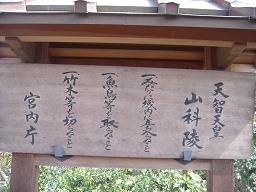 天智天皇
山科陵
一、みだりに域内に立入らぬこと
一、魚鳥等を取らぬこと
一、竹木等を切らぬこと
宮内庁